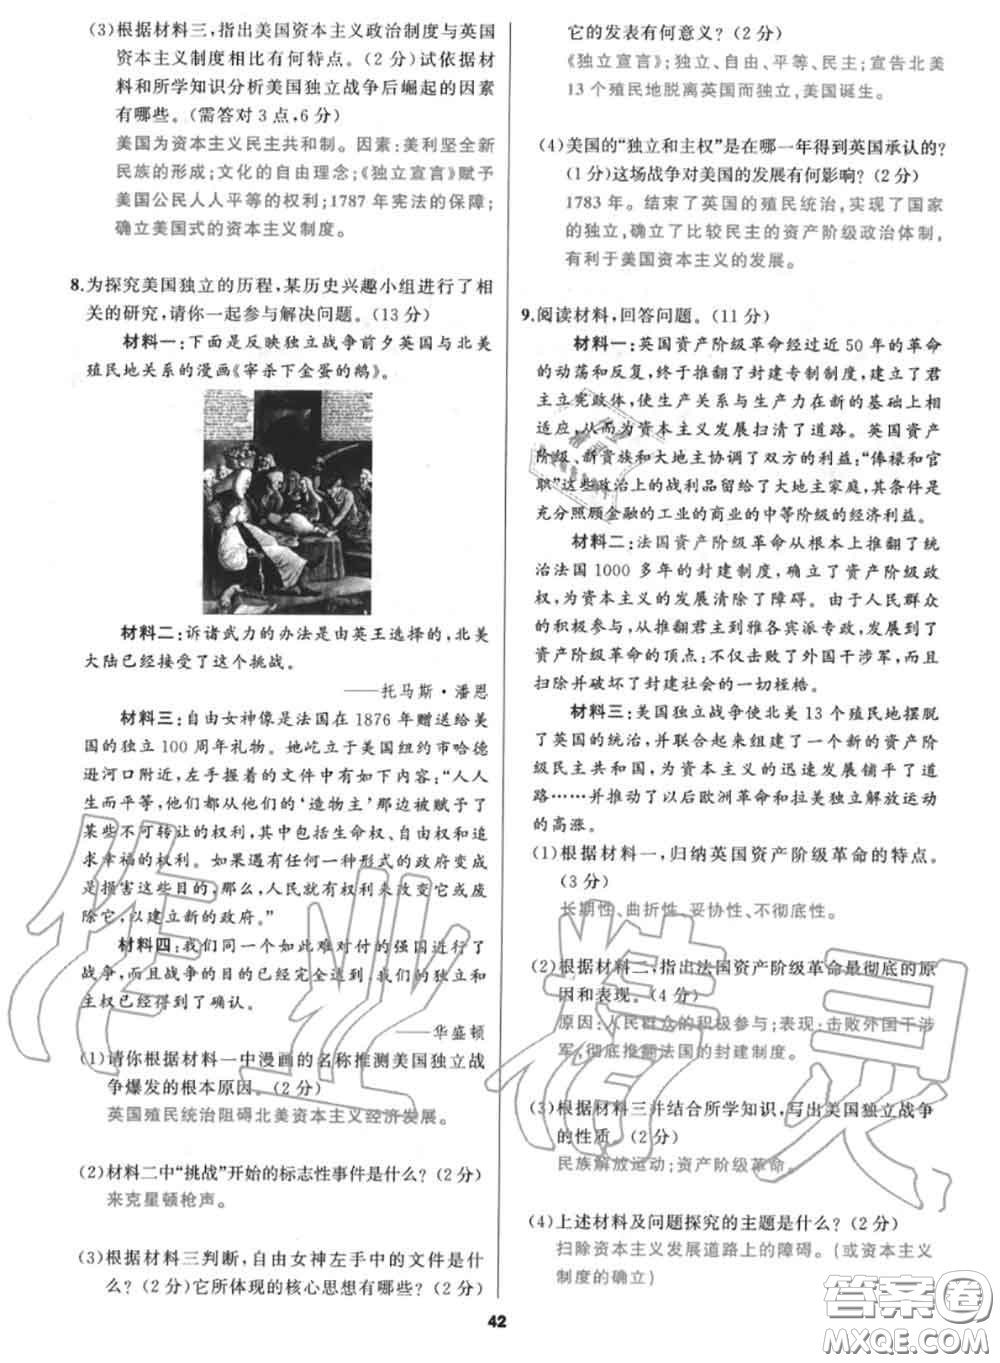 (3)根据材料三,指出美国资本主义政治制度与英国
资本主义制度相比有何特点。(2分)试依据材
料和所学知识分析美国独立战争后崛起的因素
有哪些。(需答对3点,6分)
美国为资本主义民主共和制。因素:美利坚全新
民族的形成;文化的自由理念;《独立宣言》赋予
美国公民人人平等的权利;1787年宪法的保障;
确立美国式的资本主义制度。
8.为探究美国独立的历程,某历史兴趣小组进行了相
关的研究,请你一起参与解决问题。(13分)
材料一:下面是反映独立战争前夕英国与北美
殖民地关系的漫画《宰杀下金蛋的鹅》。
材料二:诉诸武力的办法是由英王选择的,北美
大陆已经接受了这个挑战。
——托马斯·潘恩
材料三:自由女神像是法国在1876年赠送给美
国的独立100周年礼物。她屹立于美国纽约市哈德
逊河口附近,左手握着的文件中有如下内容:“人人
生而平等,他们都从他们的‘造物主’那边被赋予了
某些不可转让的权利,其中包括生命权、自由权和追
求幸福的权利。如果遇有任何一种形式的政府变成
是损害这些目的,那么,人民就有权利来改变它或废
除它,以建立新的政府。”
材料四:我们同一个如此难对付的强国进行了
战争,而且战争的目的已经完全达到,我们的独立和
主权已经得到了确认。
——华盛顿
(1)请你根据材料一中漫画的名称推测美国独立战
争爆发的根本原因。(2分)
英国殖民统治阻碍北美资本主义经济发展。
(2)材料二中“挑战”开始的标志性事件是什么?(2分)
来克星顿枪声。
(3)根据材料三判断,自由女神左手中的文件是什
么?(2分)它所体现的核心思想有哪些?(2分)
它的发表有何意义?(2分)
《独立宣言》;独立、自由、平等、民主;宣告北美
13个殖民地脱离英国而独立,美国诞生。
(4)美国的“独立和主权”是在哪一年得到英国承认的?
(1分)这场战争对美国的发展有何影响?(2分)
1783年。结束了英国的殖民统治,实现了国家
的独立,确立了比较民主的资产阶级政治体制,
有利于美国资本主义的发展。
9.阅读材料,回答问题。(11分)
材料一:英国资产阶级革命经过近50年的革命
的动荡和反复,终于推翻了封建专制制度,建立了君
主立宪政体,使生产关系与生产力在新的基础上相
适应,从而为资本主义发展扫清了道路。英国资产
阶级、新贵族和大地主协调了双方的利益;“俸禄和官
职”这些政治上的战利品留给了大地主家庭,其条件是
充分照顾金融的工业的商业的中等阶级的经济利益。
材料二:法国资产阶级革命从根本上推翻了统
治法国1000多年的封建制度,确立了资产阶级政
权,为资本主义的发展清除了障碍。由于人民群众
的积极参与,从推翻君主到雅各宾派专政,达到了
资产阶级革命的顶点:不仅击败了外国干涉军,而且
扫除并破坏了封建社会的一切桎梏。
材料三:美国独立战争使北美13个殖民地摆脱
了英国的统治,并联合起来组建了一个新的资产阶
级民主共和国,为资本主义的迅速发展铺平了道
路……并推动了以后欧洲革命和拉美独立解放运动
的高涨。
(1)根据材料一,归纳英国资产阶级革命的特点。
(3分)
长期性、曲折性、妥协性、不彻底性。
(2)根据材料二,指出法国资产阶级革命最彻底的原
因和表现。(4分)
原因:人民群众的积极参与;表现:击败外国干涉
军,彻底推翻法国的封建制度。
(3)根据材料三并结合所学知识,写出美国独立战争
的性质。(2分)
民族解放运动;资产阶级革命。
(4)上述材料及问题探究的主题是什么?(2分)
扫除资本主义发展道路上的障碍。(或资本主义
制度的确立)
42
作业精灵
答案圈
MXQE.COM